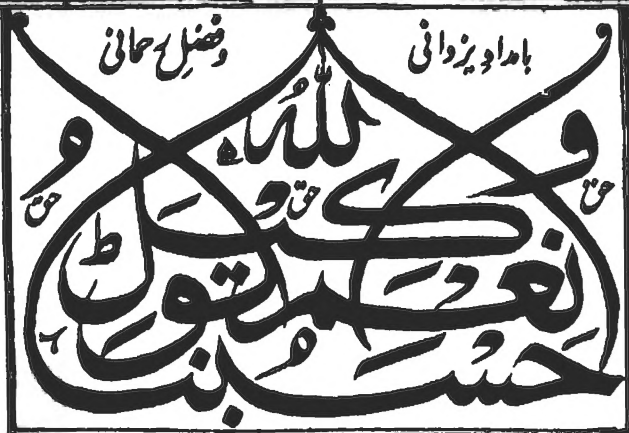 بامداد یزدانی و فضل رحمانی
حسبنا الله ونعم الوكيل
حق حق حق